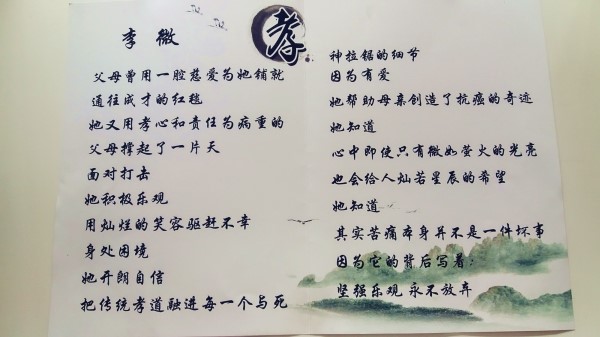 孝
李微
父母曾用一腔慈爱为她铺就
通往成才的红毯
她又用孝心和责任为病重的
父母撑起了一片天
面对打击
她积极乐观
用灿烂的笑容驱赶不幸
身处困境
她开朗自信
把传统孝道融进每一个与死
神拉锯的细节
因为有爱
她帮助母亲创造了抗癌的奇迹
她知道
心中即使只有微如萤火的光亮
也会给人灿若星辰的希望
她知道
其实苦痛本身并不是一件坏事
因为它的背后写着：
坚强乐观 永不放弃